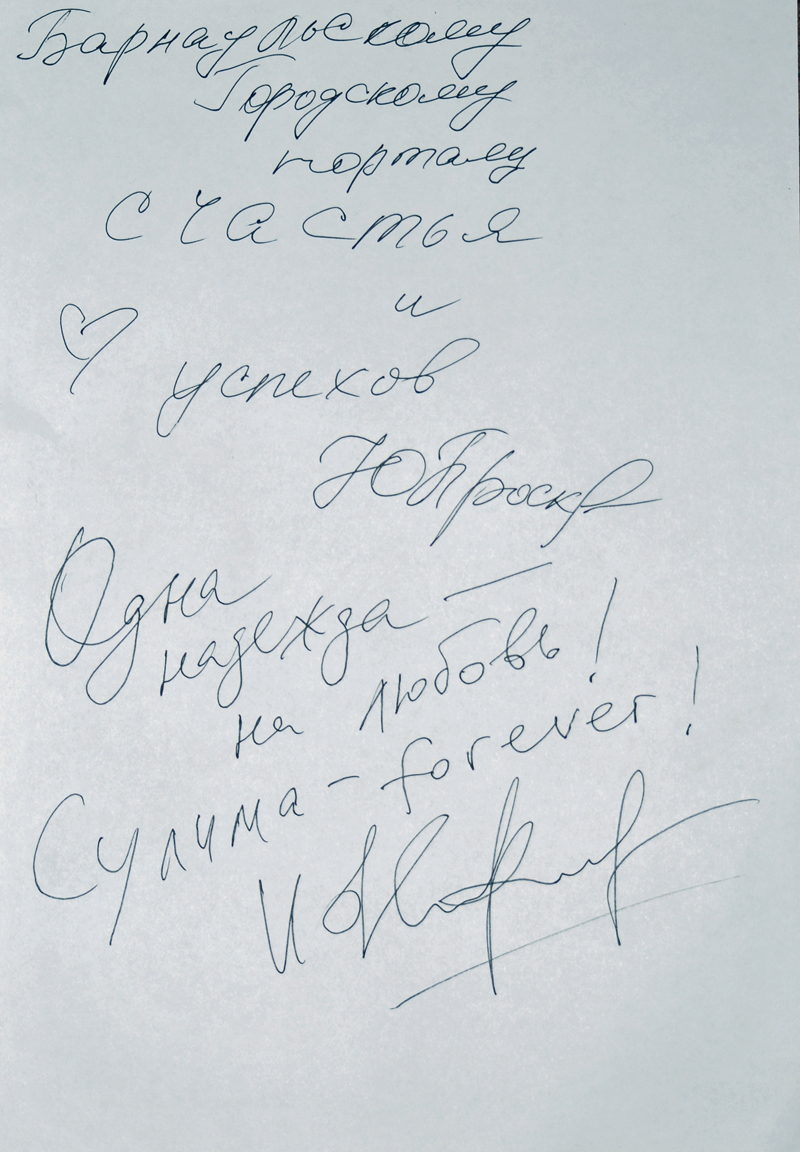 Барнаульскому
Городскому
порталу
счастья
и
успехов
ЮПроск
Одна
надежда —
на любовь!
Сулима - forever!